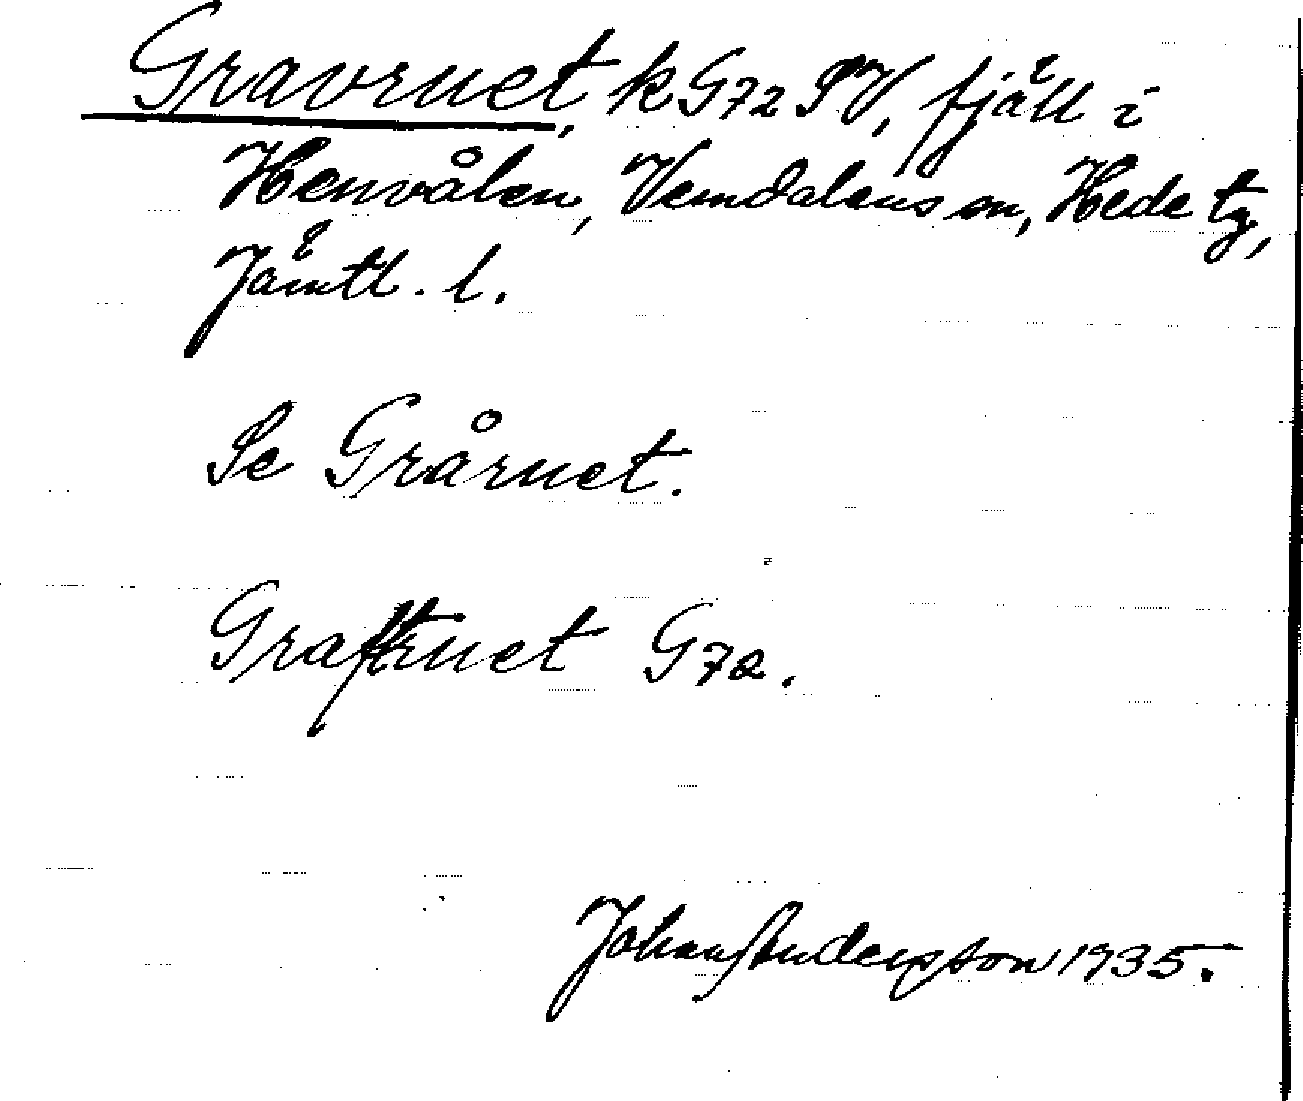 Gravruet, k G72 SV, fjäll i
Henvålen, Vemdalens sn, Hede tg,
Jämtl. l.
Se Gråruet.
Graftruet G72.
Johan Andersson 1935.